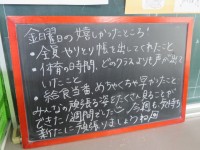 金曜日の嬉しかったところ!
・全員やりとり帳を出してくれたこと
・体育の時間、どのクラスよりも声が出て
いたこと
・給食当番、めちゃくちゃ早かったこと
みんなの頑張る姿をたくさん見ることが
できた1週間でした 今週も気持ち
新たに頑張りましょうね